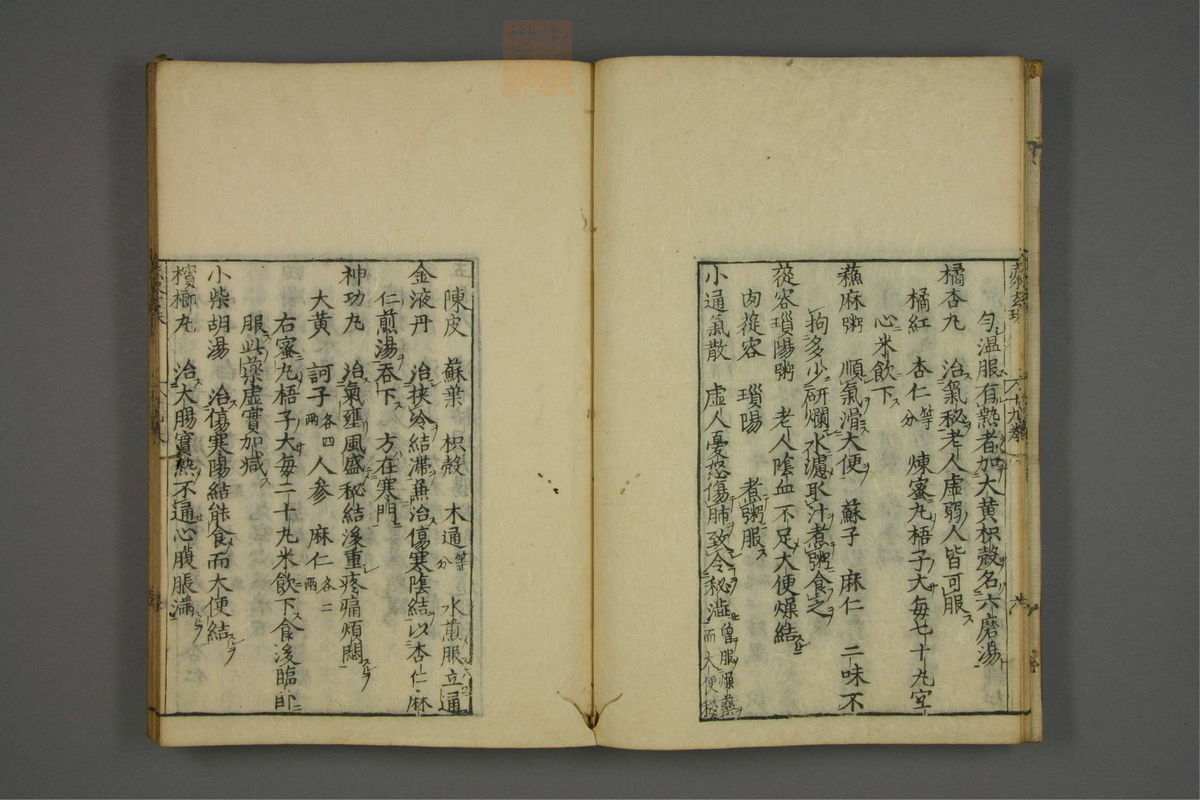 勻溫服有熱者加大黄枳殼名六磨湯
橘杏丸　治氣秘老人虛弱人皆可服
橘紅　杏仁等分　煉蜜丸梧子大每七十丸空
心米飲下
蘓麻粥　順氣滑大便　蘇子　麻仁　二味不
拘多少研爛水濾取汁煮粥食之
蓯容瑣陽粥　老人陰血不足大便燥結
肉蓯容　瑣陽　煮粥服
小通氣散　虛人憂怒傷肺致令秘澁曾服燥藥而大便秘
陳皮　蘇葉　枳殼　木通等分　水煎服立通
金液丹　治挾冷結滯兼治傷寒陰結以杏仁麻
仁煎湯吞下　方在寒門
神功丸　治氣壅風盛秘結後重疼痛煩悶
大黄　訶子各四兩　人參　麻仁各二兩
右蜜丸梧子大每二十丸米飲下食後臨卧
服此藥虛實加减
小柴胡湯　治傷寒陽結能食而大便結
檳榔丸　治大腸實熱不通心腹脹滿